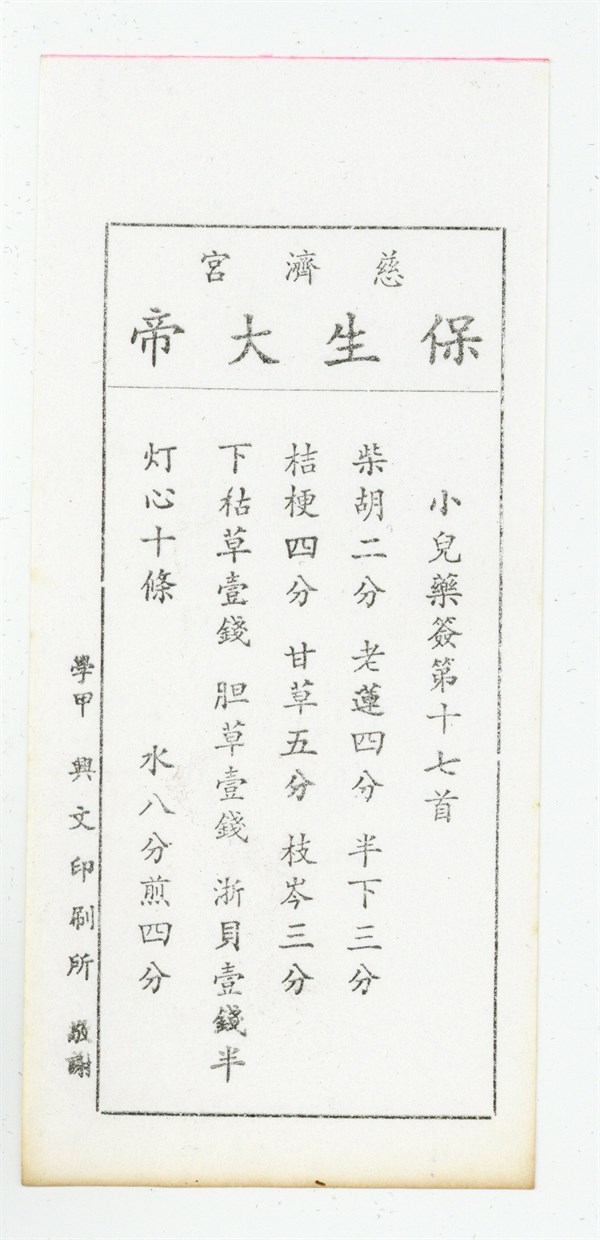 慈濟宮
保生大帝
小兒藥簽第十七首
柴胡二分 老蓮四分 半下三分
桔梗四分 甘草五分 枝岑三分
下枯草壹錢 胆草壹錢 浙貝壹錢半
灯心十條 水八分煎四分
學甲 興文印刷所 敬謝